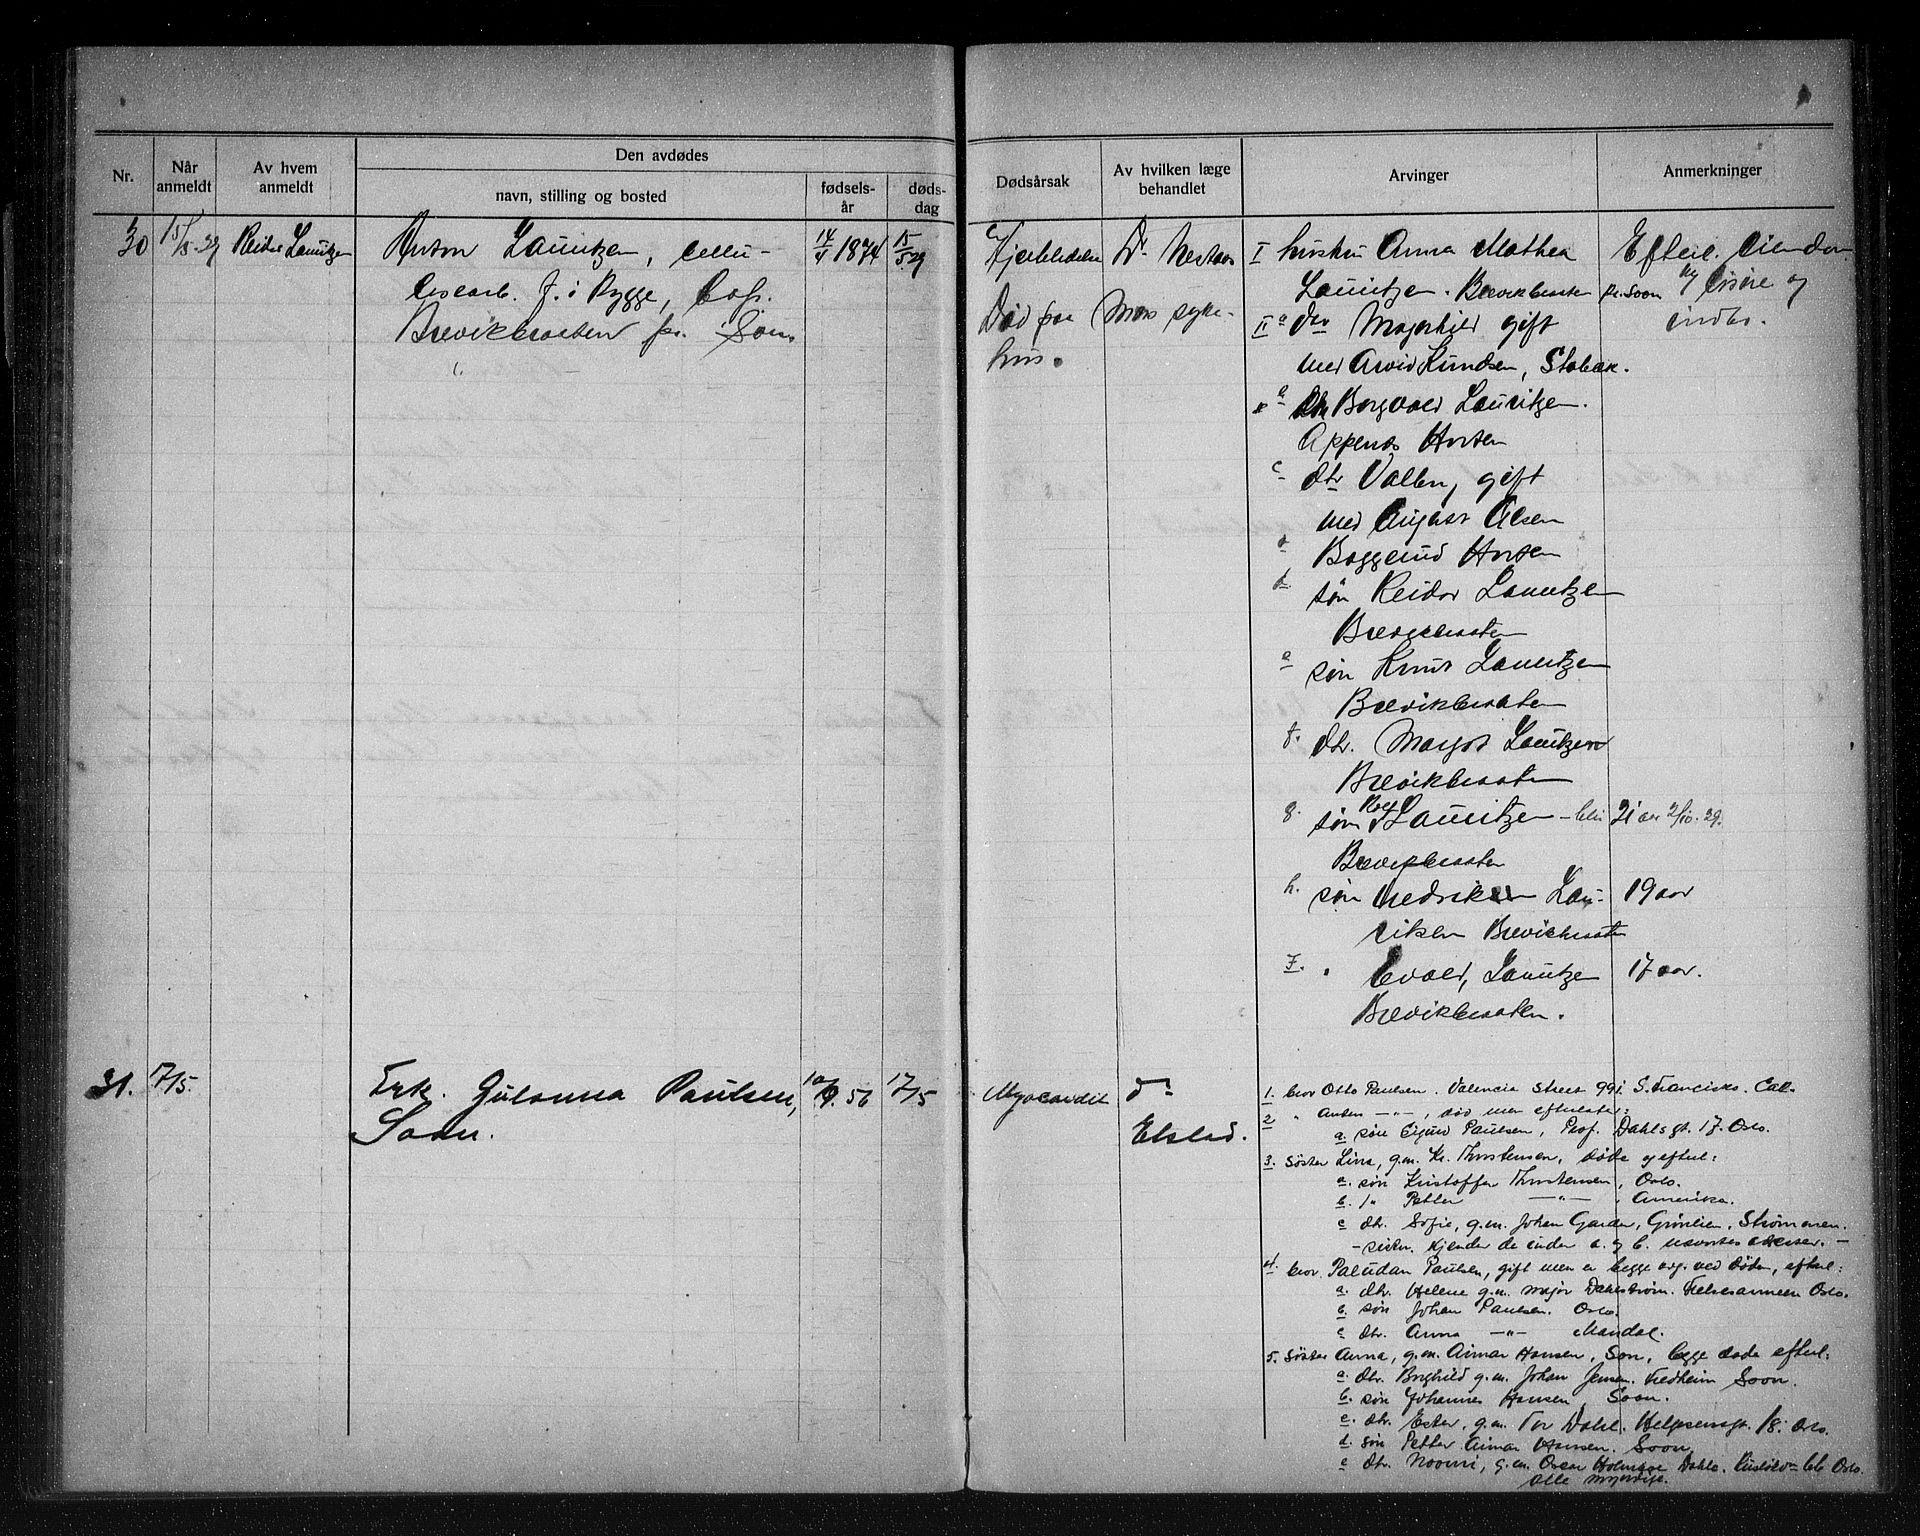 Nr.
Når anmeldt
Av hvem anmeldt
Den avdødes
navn, stilling og bosted
fødsels-år
døds-dag
Dødsårsak
Av hvilken læge behandlet
Arvinger
Anmerkninger
30
15/5-29
Reidar Lauritzen
Anton Lauritzen, cellu-
losearb. f. i Rygge,
Brevikbraaten pr. Son.
14/4 1874
15/5 29
Hjerteledelse
Død paa
hus.
Dr
Moss syke-
I hustru Anna Mathea
Lauritzen. Brevikbraaten pr. Soon
II a dtr Magnhild gift
med Arvid Knudsen, Stabæk.
Borgvald Lauritzen.
Appenæs Horten
c dtr Valben, gift
med August Olsen
Baggerud Horten
d søn Reidar Lauritzen
Brevikbraaten
e søn Knut Lauritzen
Brevikbraaten
f. dtr. Margot Lauritzen
Brevikbraaten
g. søn Lauritzen - blir 21 aar 2/10. 29.
Brevikbraaten
h. søn Fredrik Lau-
ritzen Brevikbraaten
19 aar
" Evald, Lauritzen
17 aar.
Brevikbraaten.
Efterl. eiendom
og
indbo.
31.
17/5.
Frk. Gulanna Paulsen,
Soon.
10/9. 56
17/5
Myocardit
dr
Elstad.
1. bror Otto Paulsen. Valencia Street 991 S. Francisko. Cal.
2 " Anton —"—, død men efterlater:
a. søn Sigurd Paulsen, Prof. Dahlsgt. 17. Oslo.
3. søster Lina, g.m. Kr. Thorstensen, døde og efterl:
a. søn Kristoffer Thorstensen, Oslo.
b. " Petter —"— , Amerika.
c dtr. Sofie, g.m. Johan Garder, Grønlien, Strømmen.
- sistn. kjender de under a. og b. nævntes adresser. -
4. bror Paludan Paulsen, gift men er begge avg. ved døden, efterl:
a. dtr. Helene g.m. major Dahlstrøm. Frelsesarmeen Oslo.
b. søn Johan Paulsen. Oslo.
c dtr. Anna —"— Mandal.
5. søster Anna, g.m. Aimar Hansen, Son, begge døde efterl:
a. dtr. Borghild g.m. Johan Jensen. Fredheim Soon.
b. søn Johannes Hansen, Soon.
c. dtr. Ester, g.m. Tor Dahl. Helgesensgt. 18. Oslo.
d. søn Petter Aimar Hansen. Soon.
e dtr. Noomi, g.m. Oscar Holmboe Dahl. 66 Oslo.
Alle myndige.